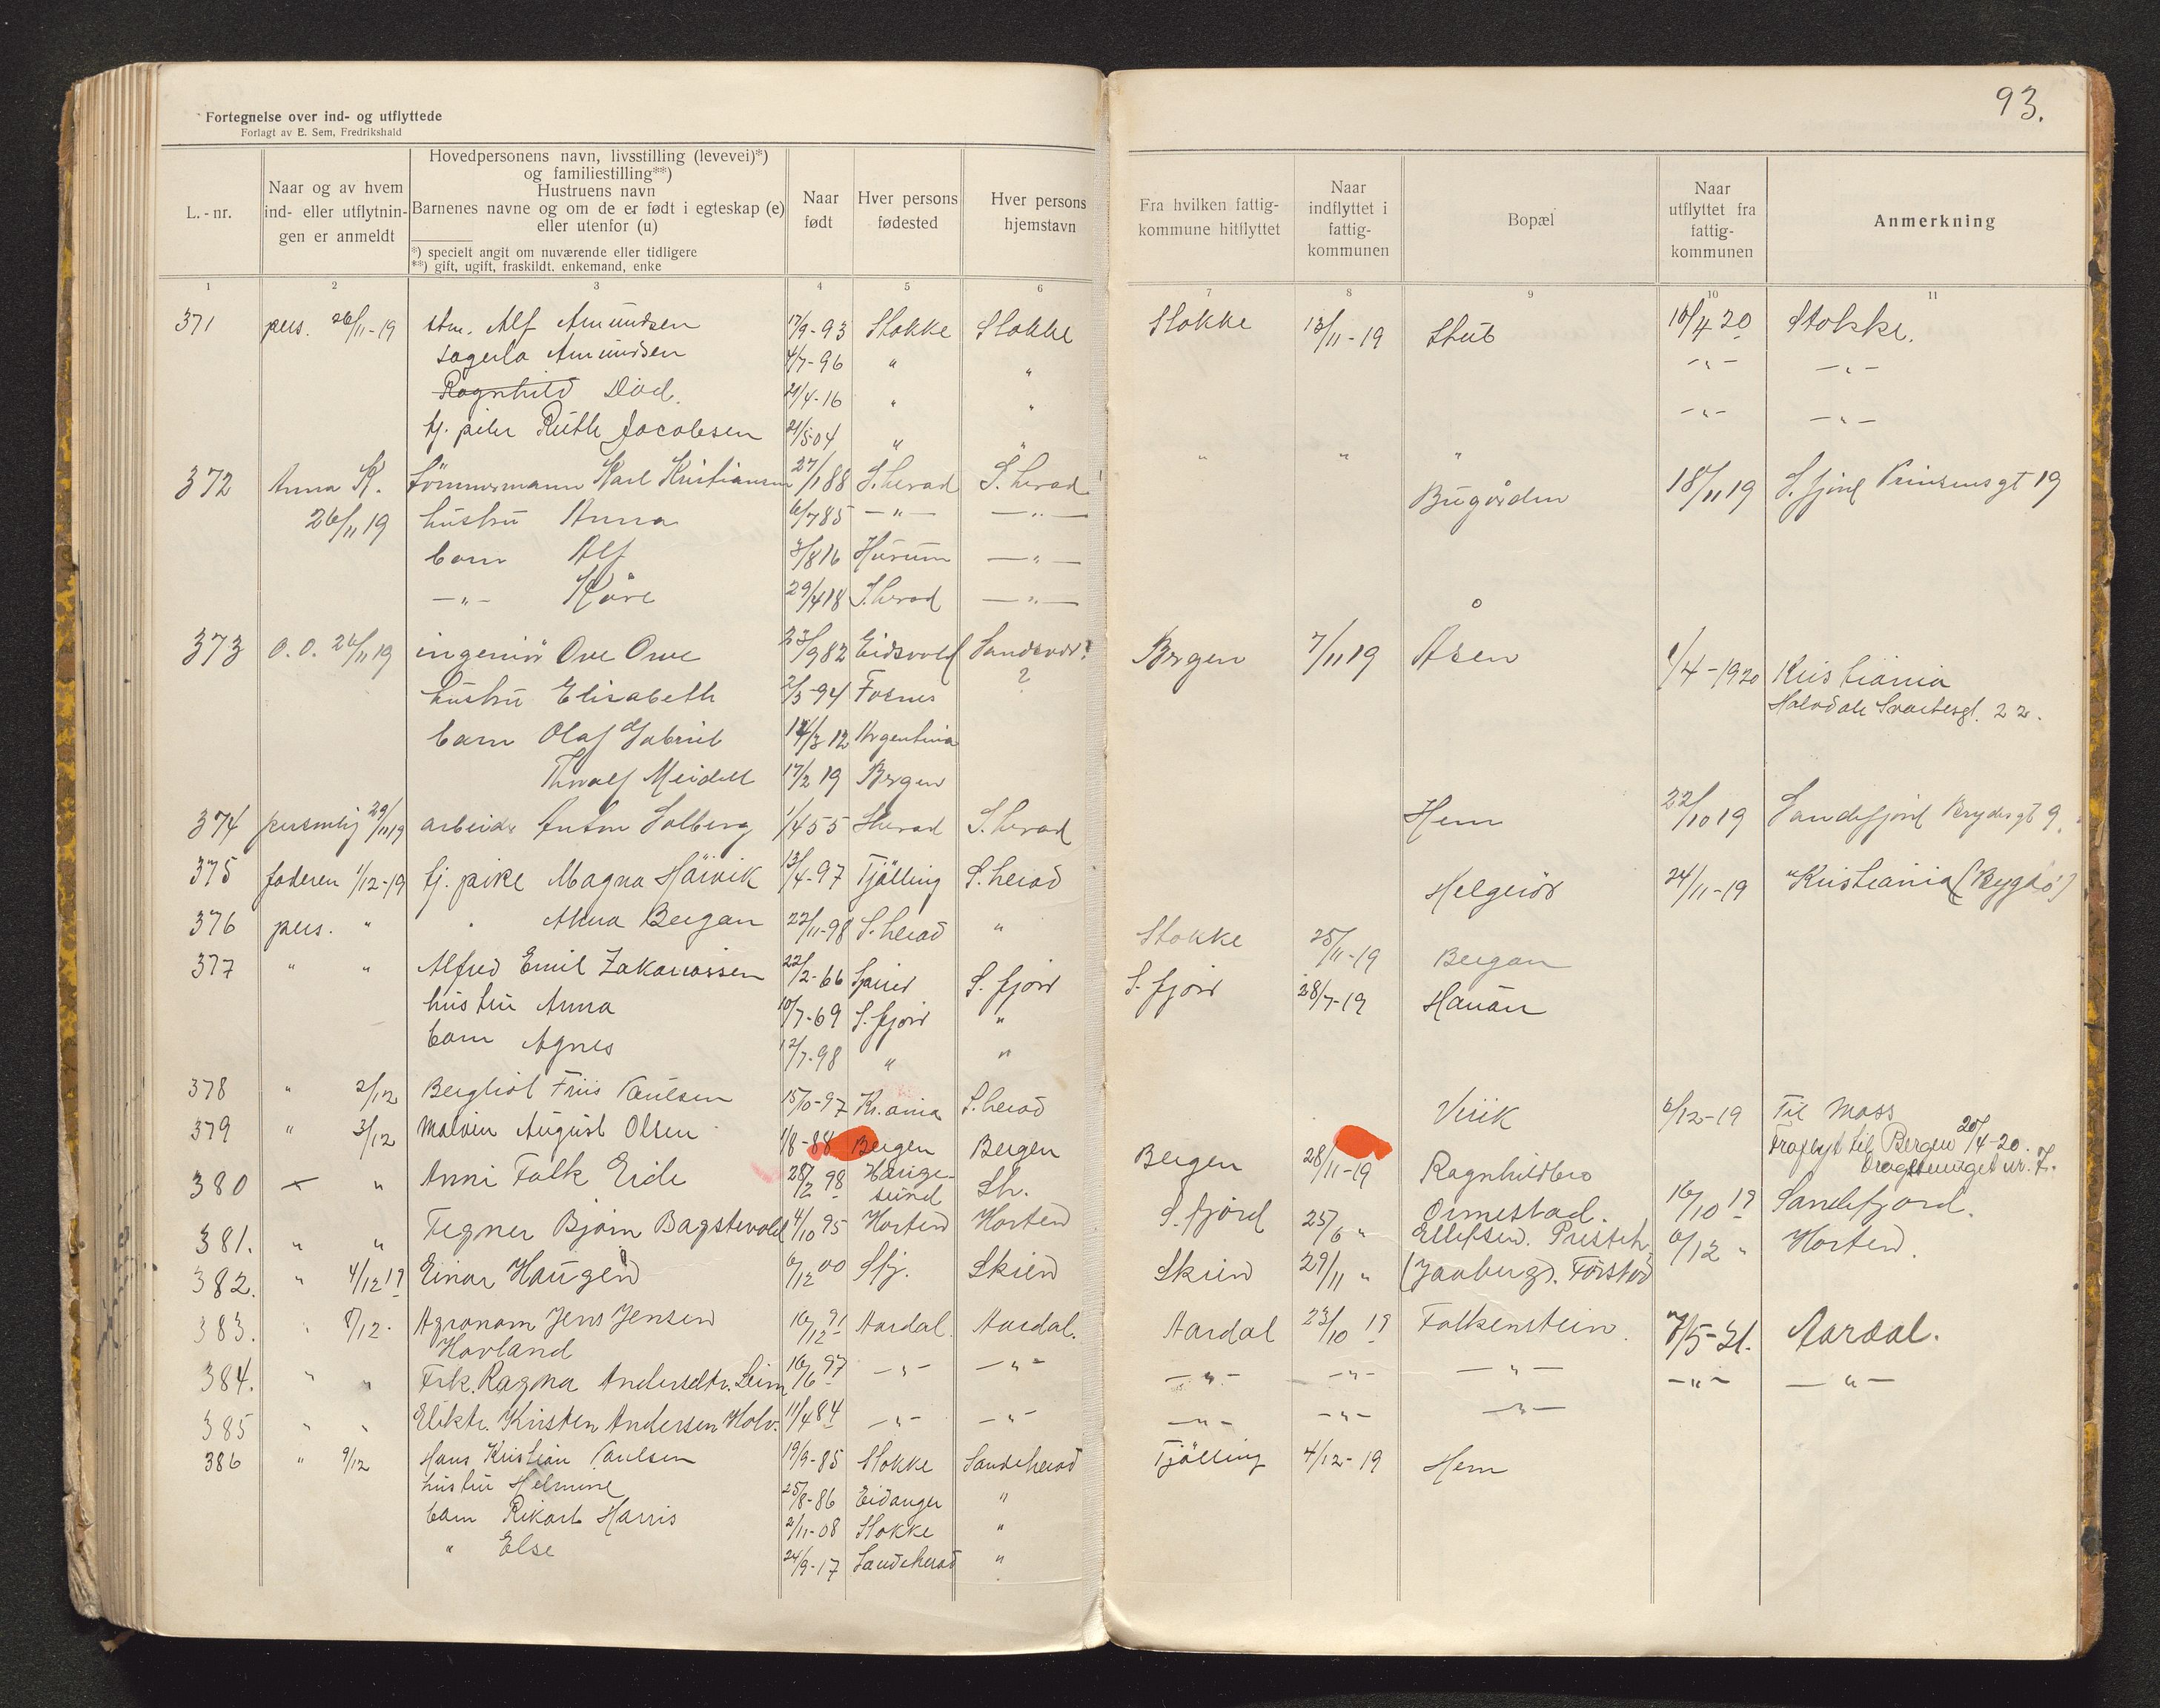 93.
Fortegnelse over ind- og utflyttede
Forlagt av E. Sem, Fredrikshald
L.-nr.
Naar og av hvem ind- eller utflytningen er anmeldt
Hovedpersonens navn, livsstilling (levevei)*)
og familiestilling**)
Hustruens navn
Barnenes navne og om de er født i egteskap (e)
eller utenfor (u)
*) specielt angit om nuværende eller tidligere
**) gift, ugift, fraskildt, enkemand, enke
Naar født
Hver persons fødested
Hver persons hjemstavn
Fra hvilken fattigkommune hitflyttet
Naar indflyttet i fattigkommunen
Bopæl
Naar utflyttet fra fattigkommunen
Anmerkning
1 2 3 4 5 6 7 8 9 10 11
371 pers. 26/11-19 Alf Amundsen 17/9-93 Stokke Stokke Stokke 13/11-19 Stub 10/4 20 Stokke.
Amundsen 4/7-96 " " -"- -"-
Ragnhild Död. 21/4-16 " " -"- -"-
tj. Ruth Jacobsen 21/5 04 " " " " "
372 Anna K. tömmermann Karl Kristiansen 27/1 88 S.herad S.herad Bugården 18/11 19 S.fjord Prinsensgt 19
26/11 19 hustru Anna 6/7 85 -"- -"-
barn Alf 3/8 16 Hurum -"-
-"- Kåre 29/4 18 S.herad -"-
373 O.O. 26/11 19 ingeniör Ove Orve 23/9 82 Eidsvold ? Bergen 7/11 19 Åsen 1/4-1920 Kristiania
hustru Elisabeth 2/3-94 Fosnes ? 22.
barn Olaf Gabriel 14/3 12 Argentina
Thoralf Meidell 17/2 19 Bergen
374 personlig 29/11 19 arbeider Anton Solberg 1/4 55 S.herad S.herad Hem 22/10 19 Sandefjord Brydesgt 9.
375 faderen 1/12-19 tj. pike Magna Håvik 13/4-97 Tjölling S.herad Helgerød 24/11-19 Kristiania (Bygdö)
376 pers. " " Bergan 22/11-98 S.herad " Stokke 25/11-19 Bergan
377 " " Alfred Emil Zakariassen 22/2-66 S.fjord S.fjord 28/7-19 Hauan
hustru Anna 10/7-69 S.fjord "
barn Agnes 12/7-98 " "
378 " 2/12 Bergliot Friis Paulsen 15/10-97 Kr.ania S.herad Virik 6/12-19 Til Moss
379 " 3/12 Malvin August Olsen 1/8-88 Bergen Bergen Bergen 28/11-19 Ragnhildbro Fraflyt til Bergen 20/4-20.
nr. 7.
380 " Anni Falk Eide 28/2 98 Haugesund Sh. S.fjord 25/6 " Ormestad. 16/10 19 Sandefjord.
381. " " Tegner Björn Bagstevold 4/10 95 Horten Horten Ellefsen. 6/12 " Horten.
382. " 4/12 19 Einar Haugen 6/12 00 Sfj. Skien Skien 29/11 "
383. " 8/12. Agronom Jens Jensen 16/12 91 Aardal. Aardal. Aardal 23/10 19 Falkenstein. 7/5-21. Aardal.
Hovland
384. " " Frk. Ragna Andersdtr. 16/6 97 -"- -"- -"- -"- -"- -"- -"-
385 " " Elektr. Kristen Andersen Holv. 11/4 84 -"- -"- -"- -"- -"-
386 " 9/12 Hans Kristian Paulsen 19/9-85 Stokke Sandeherad Tjölling 4/12-19 Hem
hustru Helmine 25/8-86 Eidanger "
barn Rikart Harris 2/11-08 Stokke "
" Else 24/9-17 Sandeherad "